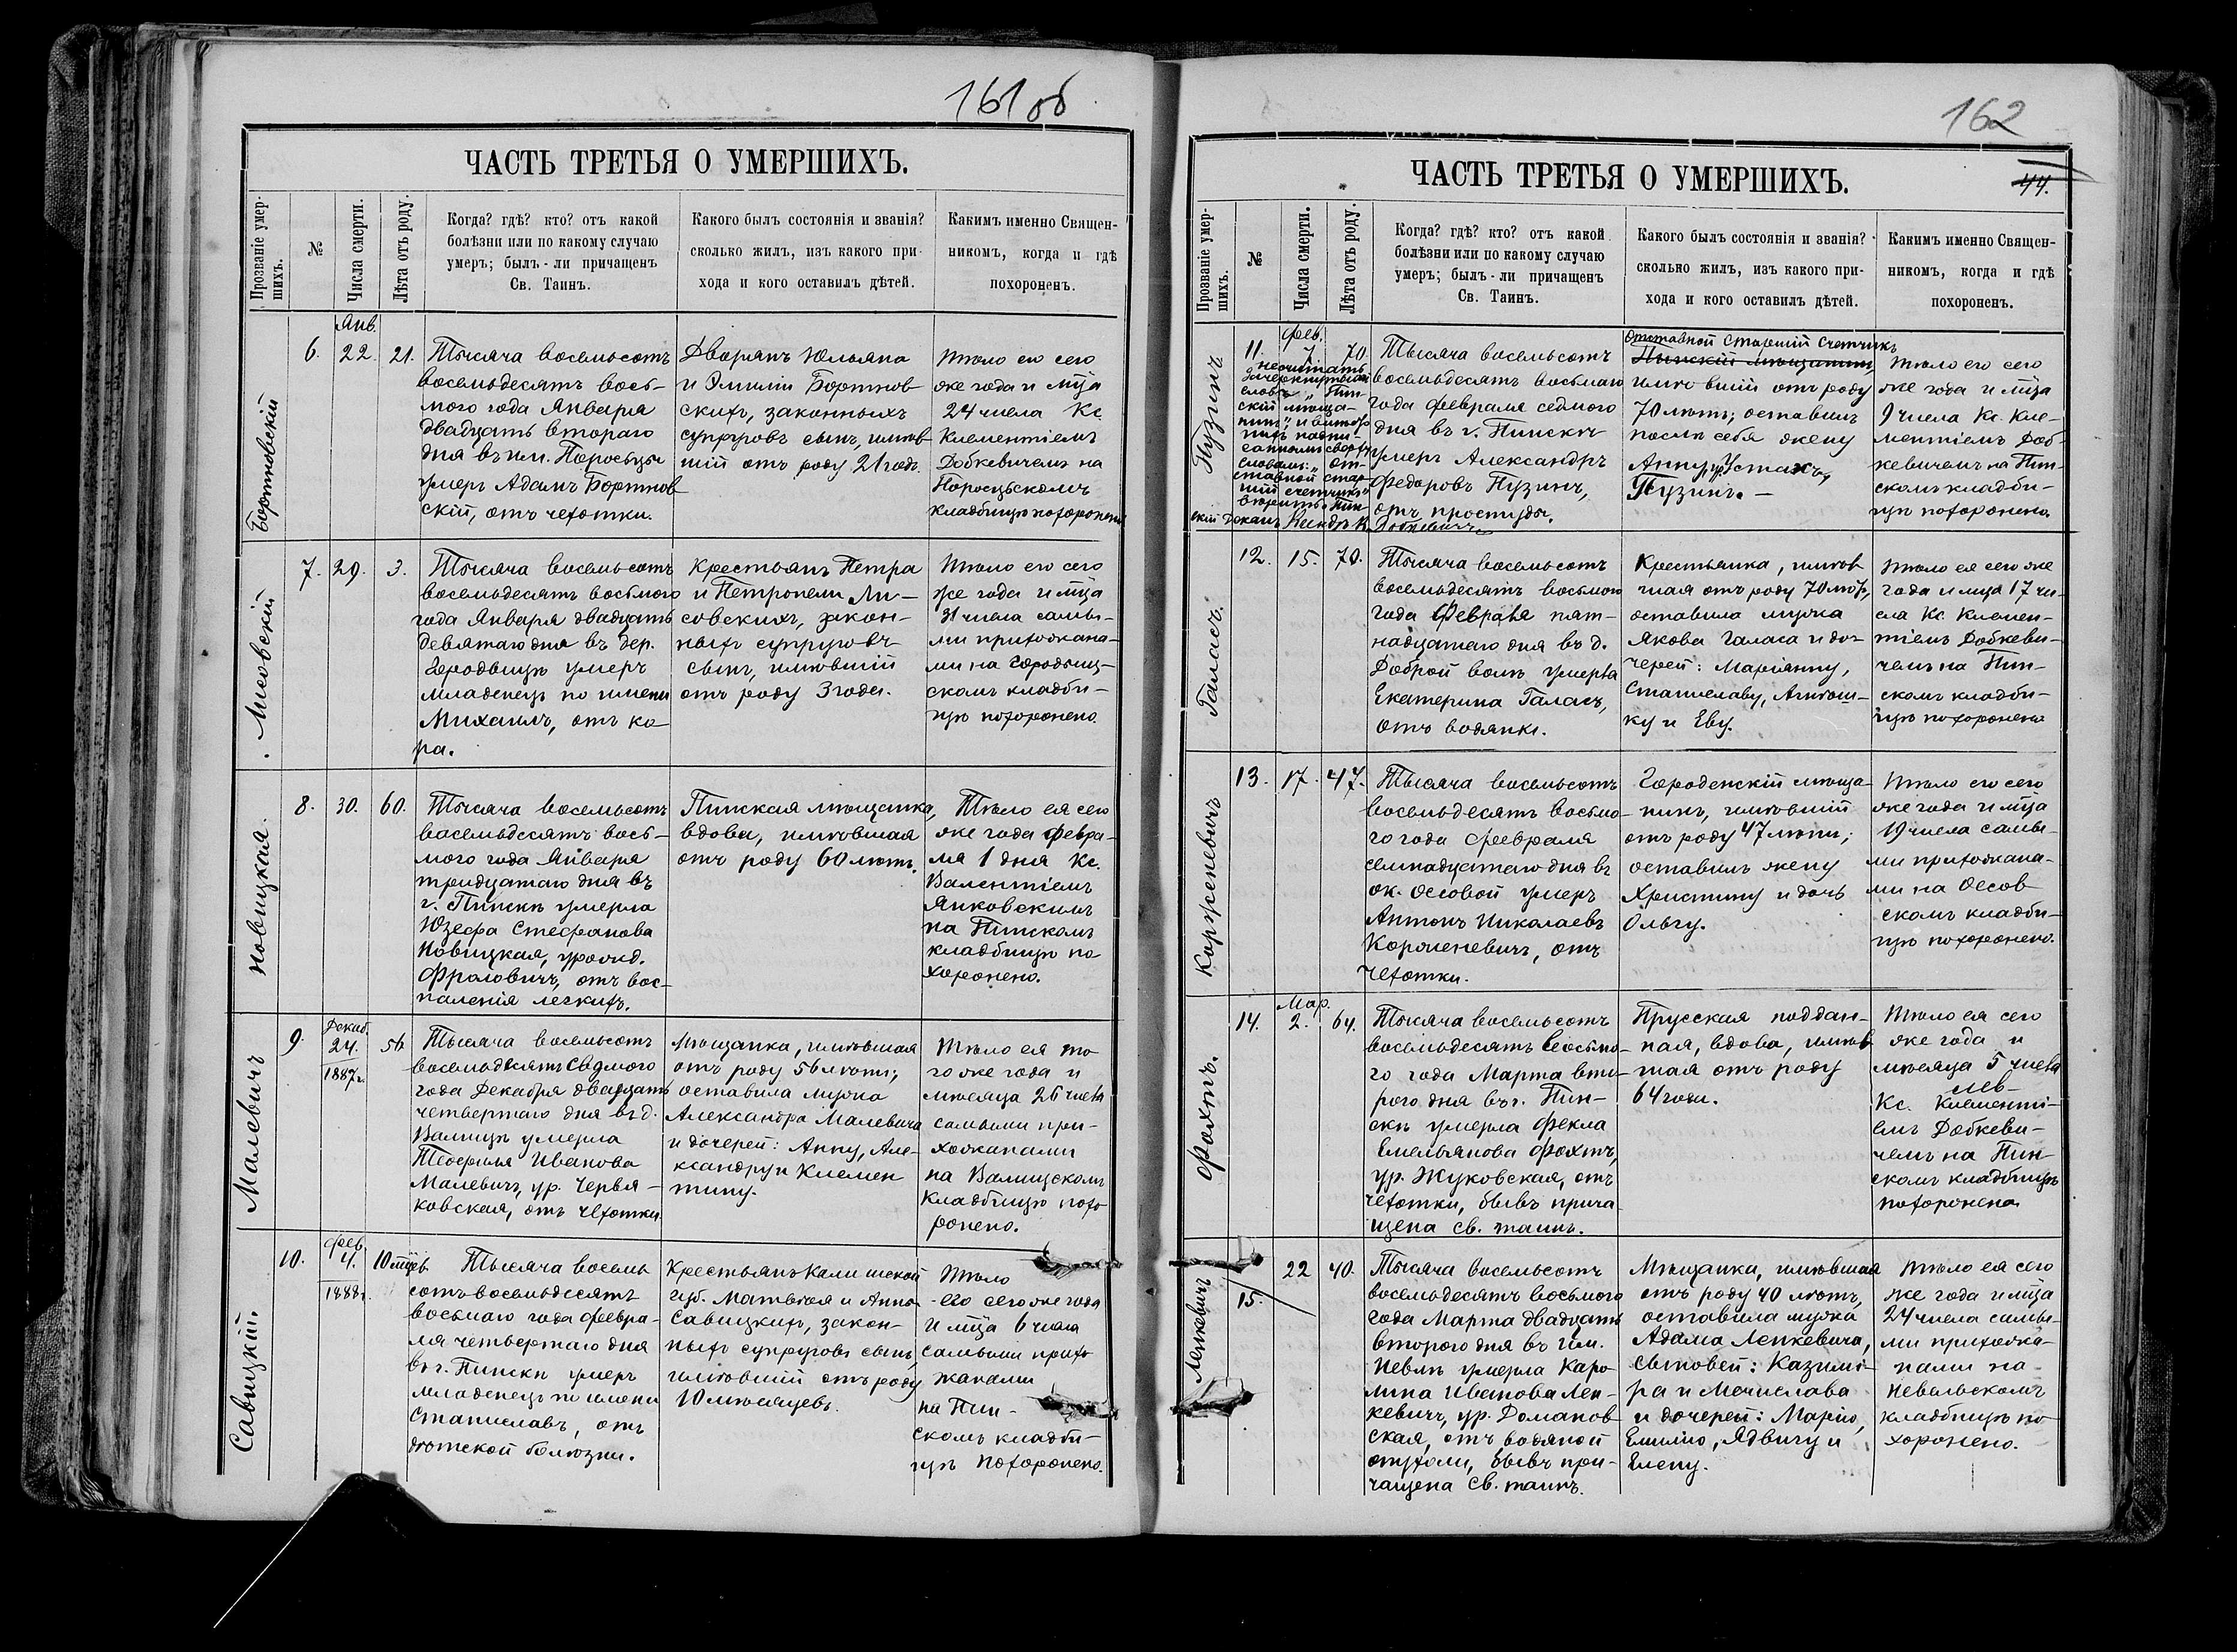 161 об
ЧАСТЬ ТРЕТЬЯ О УМЕРШИХЪ.
Прозваніе умер-
шихъ.
№
Числа смерти.
Лѣта отъ роду.
Когда? гдѣ? кто? отъ какой
болѣзни или по какому случаю
умеръ; былъ-ли причащенъ
Св. Таинъ.
Какого былъ состоянія и званія?
сколько жилъ, изъ какого при-
хода и кого оставилъ дѣтей.
Какимъ именно Священ-
никомъ, когда и гдѣ
похороненъ.
Бортновскій
6.
Янв.
22.
21.
Тысяча восемьсотъ
восемьдесятъ вось-
мого года Января
двадцать второго
дня въ им.
умеръ Адамъ Бортнов
скій, отъ чехотки.
Дворянъ Юльяна
и Эмиліи Бортнов
скихъ, законныхъ
супруговъ сынъ, имѣв
шій отъ роду 21 годъ.
Тѣло его сего
же года и мца
24 числа Кс.
Клементіемъ
Добкевичемъ на
кладбищѣ похоронено
Лисовскій
7.
29.
3.
Тысяча восемьсотъ
восемьдесятъ восьмого
года Января двадцать
девятаго дня въ дер.
Городищѣ умеръ
младенецъ по имени
Михаилъ, отъ ко
ра.
Крестьянъ Петра
и Петронели Ли-
совскихъ, закон-
ныхъ супруговъ
сынъ, имѣвшій
отъ роду 3 года.
Тѣло его сего
же года и мца
31 числа самы-
ми прихожана-
ми на Городищ-
скомъ кладби-
щѣ похоронено.
Новицкая.
8.
30.
60.
Тысяча восемьсотъ
восемьдесятъ вось-
мого года Января
тридцатаго дня въ
г. Пинскѣ умерла
Юзефа Стефанова
Новицкая, урожд.
Фроловичъ, отъ вос-
паленія легкихъ.
Пинская мѣщанка,
вдова, имѣвшая
отъ роду 60 лѣтъ.
Тѣло ея сего
же года февра-
ля 1 дня Кс.
Валентіемъ
Янковскимъ
на Пинскомъ
кладбищѣ по
хоронено.
Малевичъ
9.
Декаб.
24.
1887 г.
56
Тысяча восемьсотъ
восемьдесятъ седмого
года Декабря двадцать
четвертаго дня въ д.
Валищѣ умерла
Теофилия Иванова
Малевичъ, ур. Червя-
ковская, отъ чехотки
Мѣщанка, имѣвшая
отъ роду 56 лѣтъ;
оставила мужа
Александра Малевича
и дочерей: Анну, Але-
ксандру и Клемен
тину.
Тѣло ея то
го же года и
мѣсяца 26 числа
самыми при-
хожанами
на Валищскомъ
кладбищѣ похо
ронено.
Савицкій.
10.
Фев.
4.
1888 г.
10 мцев
Тысяча восемь
сотъ восемьдесятъ
восьмаго года февра-
ля четвертаго дня
въ г. Пинскѣ умеръ
младенецъ по имени
Станиславъ, отъ
дѣтской болѣзни.
Крестьянъ Калишской
губ. Матвѣя и Анны
Савицкихъ, закон-
ныхъ супруговъ сынъ,
имѣвшій отъ роду
10 мѣсяцевъ.
Тѣло
его сего же года
и мца 6 числа
самыми прихо
жанами
на Пин-
скомъ кладби-
щѣ похоронено.
162
44.
ЧАСТЬ ТРЕТЬЯ О УМЕРШИХЪ.
Прозваніе умер-
шихъ.
№
Числа смерти.
Лѣта отъ роду.
Когда? гдѣ? кто? отъ какой
болѣзни или по какому случаю
умеръ; былъ-ли причащенъ
Св. Таинъ.
Какого былъ состоянія и званія?
сколько жилъ, изъ какого при-
хода и кого оставилъ дѣтей.
Какимъ именно Священ-
никомъ, когда и гдѣ
похороненъ.
Пузинъ
11.
Фев.
7.
70
не читать
зачеркнутыхъ
словъ „Пин-
скій мѣща-
нинъ" и вмѣсто
нихъ надпи-
саннымъ сверху
словамъ: „от-
ставной стар-
шій счетчикъ"
вѣрить. Пин-
скій Деканъ Ксендзъ К.
Добкевичъ
Тысяча восемьсотъ
восемьдесятъ восьмаго
года февраля седмого
дня въ г. Пинскѣ
умеръ Александръ
Федоровъ Пузинъ,
отъ простуды.
Отставной старшій счетчикъ
Пинскій мѣщанинъ,
имѣвшій отъ роду
70 лѣтъ; оставилъ
послѣ себя жену
Анну ур. Устахъ,
Пузинъ. —
Тѣло его сего
же года и мца
9 числа Кс. Кле-
ментіемъ Доб-
кевичемъ на Пин-
скомъ кладби-
щѣ похоронено.
Галасъ.
12.
15.
70.
Тысяча восемьсотъ
восемьдесятъ восьмого
года Февраля пят-
надцатаго дня въ д.
Доброй волѣ умерла
Екатерина Галасъ,
отъ водянки.
Крестьянка, имѣв
шая отъ роду 70 лѣтъ,
оставила мужа
Якова Галаса и до-
черей: Маріанну,
Станиславу, Антош-
ку и Еву.
Тѣло ея сего же
года и мца 17 чи-
сла Кс. Клемен-
тіемъ Добкеви-
чемъ на Пин-
скомъ кладби-
щѣ похоронено
Корженевичъ
13.
17.
47.
Тысяча восемьсотъ
восемьдесятъ восьмо-
го года февраля
семнадцатаго дня въ
ок. Осовой умеръ
Антонъ Николаевъ
Корженевичъ, отъ
чехотки.
Городенскій мѣща-
нинъ, имѣвшій
отъ роду 47 лѣтъ;
оставилъ жену
Христину и дочь
Ольгу.
Тѣло его сего
же года и мца
19 числа самы-
ми прихожана-
ми на Осов
скомъ кладби-
щѣ похоронено.
Фохтъ.
14.
Мар.
2.
64.
Тысяча восемьсотъ
восемьдесятъ восьмо-
го года Марта вто-
рого дня въ г. Пин-
скѣ умерла Фекла
Емельянова Фохтъ,
ур. Жуковская, отъ
чехотки, бывъ прича-
щена св. таинъ.
Прусская поддан-
ная, вдова, имѣв
шая отъ роду
64 года.
Тѣло ея сего
же года и
мѣсяца 5 числа
Кс. Клементі-
емъ Добкеви-
чемъ на Пин-
скомъ кладбищѣ
похоронено.
Лепкевичъ
15.
22
40.
Тысяча восемьсотъ
восемьдесятъ восьмого
года Марта двадцать
второго дня въ им.
Невлѣ умерла Каро
лина Иванова Леп-
кевичъ, ур. Романов
ская, отъ водяной
опухоли, бывъ при-
чащена св. таинъ.
Мѣщанка, имѣвшая
отъ роду 40 лѣтъ,
оставила мужа
Адама Лепкевича,
сыновей: Казими-
ра и Мечислава
и дочерей: Марію,
Емилію, Ядвигу и
Елену.
Тѣло ея сего
же года и мца
24 числа самы-
ми прихожа-
нами на
Невельскомъ
кладбищѣ по-
хоронено.